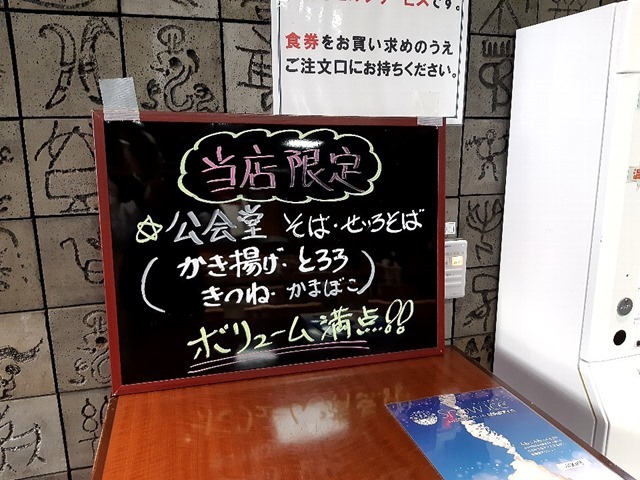 セルフサービスです。
食券をお買い求めのうえ
ご注文口にお持ちください。
当店限定
☆公会堂 そば・せいろそば
(かき揚げ・とろろ
きつね・かまぼこ)
ボリューム満点!!